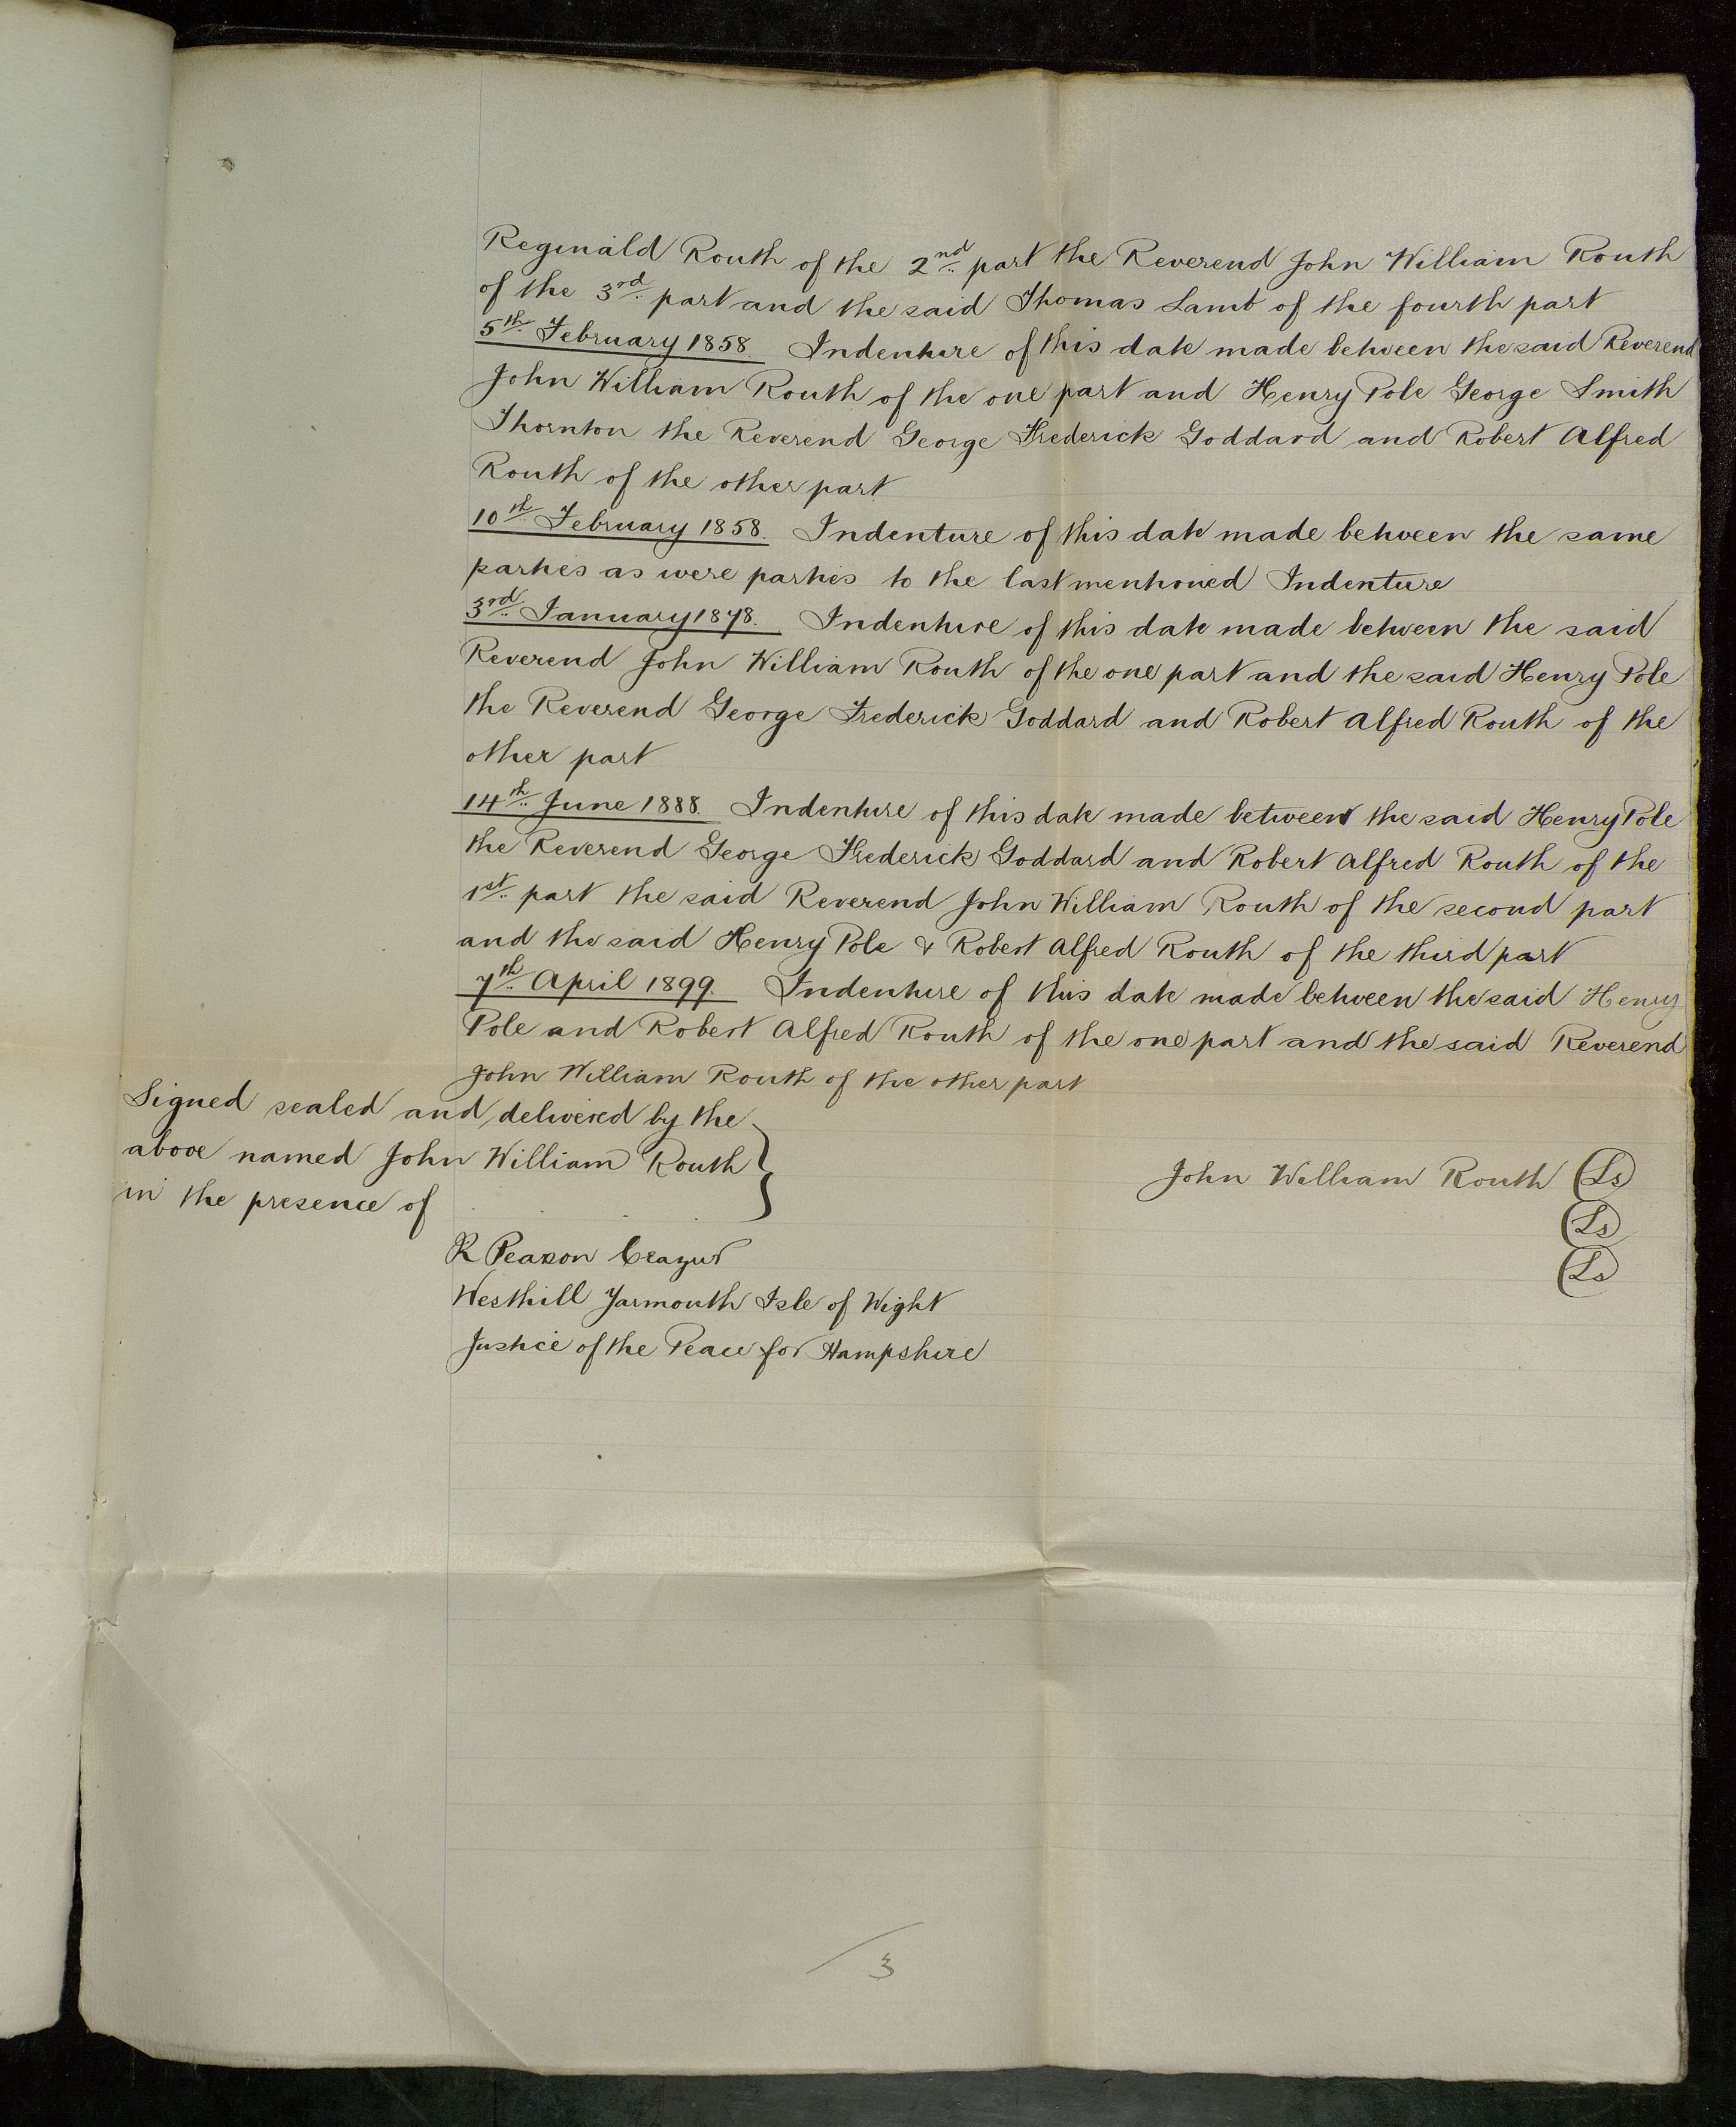 Reginald Routh of the 2nd part the Reverend John William Routh
of the 3rd part and the said Thomas Lamb of the fourth part
5th February 1858. Indenture of this date made between the said Reverend
John William Routh of the one part and Henry Pole George Smith
Thornton the Reverend George Frederick Goddard and Robert Alfred
Routh of the other part
10th February 1858. Indenture of this date made between the same
parties as were parties to the last mentioned Indenture
3rd January 1878. Indenture of this date made between the said
Reverend John William Routh of the one part and the said Henry Pole
the Reverend George Frederick Goddard and Robert Alfred Routh of the
other part
14th June 1888. Indenture of this date made between the said Henry Pole
the Reverend George Frederick Goddard and Robert Alfred Routh of the
1st part the said Reverend John William Routh of the second part
and the said Henry Pole & Robert Alfred Routh of the third part
7th April 1899. Indenture of this date made between the said Henry
Pole and Robert Alfred Routh of the one part and the said Reverend
John William Routh of the other part
Signed sealed and delivered by the
above named John William Routh
in the presence of
John William Routh Ls
Ls
Ls
R
Westhill Yarmouth Isle of Wight
Justice of the Peace for Hampshire
3